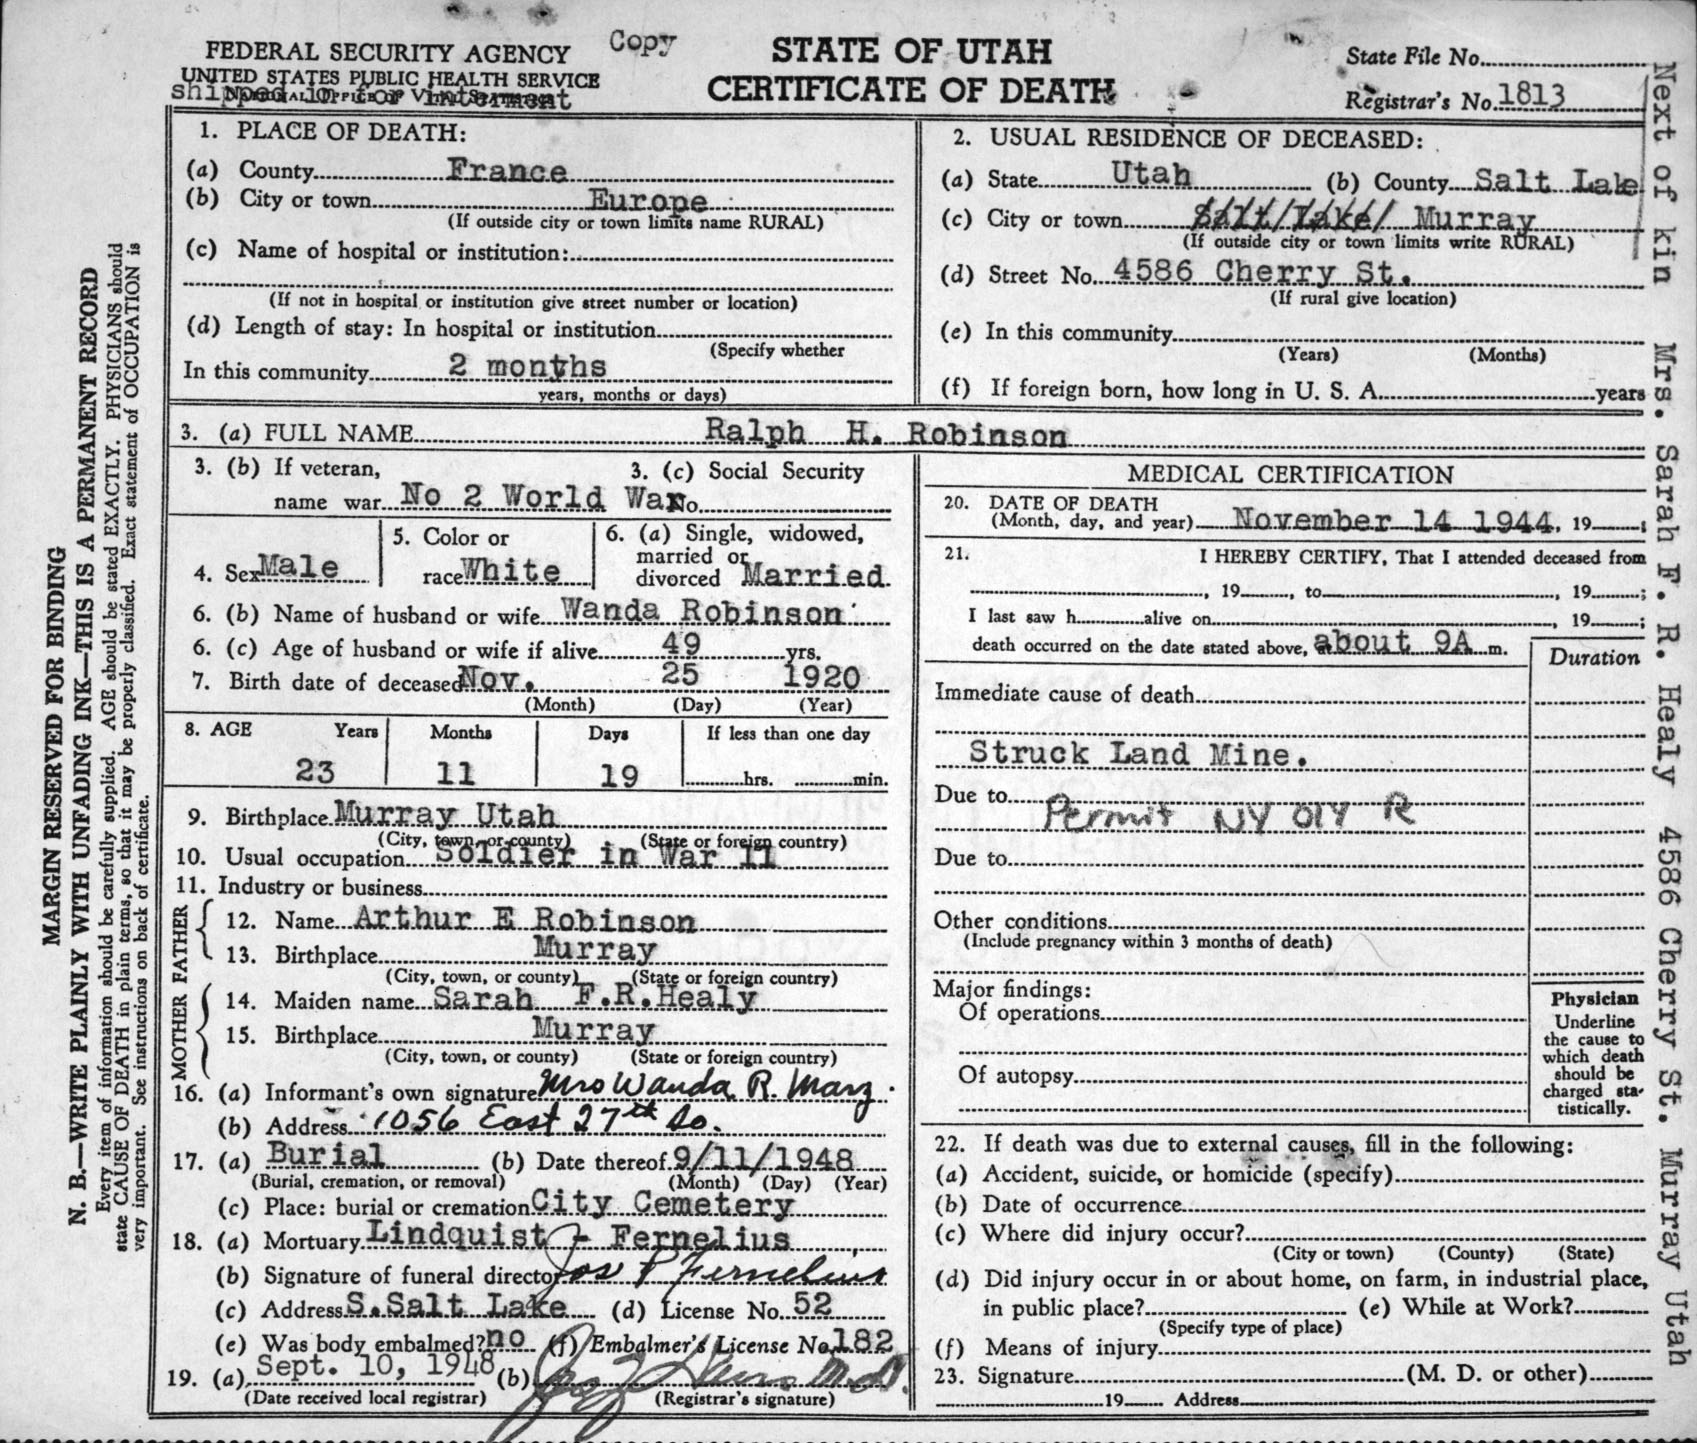 FEDERAL SECURITY AGENCY
Copy
UNITED STATES PUBLIC HEALTH SERVICE
shipped in for Interment
STATE OF UTAH
CERTIFICATE OF DEATH
State File No.
Registrar's No. 1813
1. PLACE OF DEATH:
(a) County France
(b) City or town Europe
(If outside city or town limits name RURAL)
(c) Name of hospital or institution:
(If not in hospital or institution give street number or location)
(d) Length of stay: In hospital or institution
(Specify whether
In this community 2 months
years, months or days)
2. USUAL RESIDENCE OF DECEASED:
(a) State Utah (b) County Salt Lake
(c) City or town Salt Lake Murray
(If outside city or town limits write RURAL)
(d) Street No. 4586 Cherry St.
(If rural give location)
(e) In this community
(Years) (Months)
(f) If foreign born, how long in U. S. A. years
3. (a) FULL NAME Ralph H. Robinson
3. (b) If veteran, 3. (c) Social Security
name war No 2 World War No.
4. Sex Male
5. Color or
race White
6. (a) Single, widowed,
married or
divorced Married
6. (b) Name of husband or wife Wanda Robinson
6. (c) Age of husband or wife if alive 49 yrs.
7. Birth date of deceased Nov. 25 1920
(Month) (Day) (Year)
8. AGE Years Months Days If less than one day
23 11 19 hrs. min.
9. Birthplace Murray Utah
(City, town, or county) (State or foreign country)
10. Usual occupation Soldier in War 11
11. Industry or business
FATHER
12. Name Arthur E Robinson
13. Birthplace Murray
(City, town, or county) (State or foreign country)
MOTHER
14. Maiden name Sarah F.R.Healy
15. Birthplace Murray
(City, town, or county) (State or foreign country)
16. (a) Informant's own signature Mrs Wanda R. Marz.
(b) Address 1056 East 27th So.
17. (a) Burial (b) Date thereof 9/11/1948
(Burial, cremation, or removal) (Month) (Day) (Year)
(c) Place: burial or cremation City Cemetery
18. (a) Mortuary Lindquist - Fernelius
(b) Signature of funeral director Jos P Fernelius
(c) Address S.Salt Lake (d) License No. 52
(e) Was body embalmed? no (f) Embalmer's License No. 182
19. (a) Sept. 10, 1948 (b) M.D.
(Date received local registrar) (Registrar's signature)
MEDICAL CERTIFICATION
20. DATE OF DEATH
(Month, day, and year) November 14 1944, 19 ;
21. I HEREBY CERTIFY, That I attended deceased from
, 19 , to , 19 ;
I last saw h alive on , 19 ;
death occurred on the date stated above, about 9A m.
Duration
Immediate cause of death
Struck Land Mine.
Due to
Permit NY 01Y R
Due to
Other conditions
(Include pregnancy within 3 months of death)
Major findings:
Of operations
Of autopsy
Physician
Underline
the cause to
which death
should be
charged sta-
tistically.
22. If death was due to external causes, fill in the following:
(a) Accident, suicide, or homicide (specify)
(b) Date of occurrence
(c) Where did injury occur?
(City or town) (County) (State)
(d) Did injury occur in or about home, on farm, in industrial place,
in public place? (e) While at Work?
(Specify type of place)
(f) Means of injury
23. Signature (M. D. or other)
19 Address
MARGIN RESERVED FOR BINDING
N. B.—WRITE PLAINLY WITH UNFADING INK—THIS IS A PERMANENT RECORD
Every item of information should be carefully supplied. AGE should be stated EXACTLY. PHYSICIANS should
state CAUSE OF DEATH in plain terms, so that it may be properly classified. Exact statement of OCCUPATION is
very important. See instructions on back of certificate.
Next of kin Mrs. Sarah F. R. Healy 4586 Cherry St. Murray Utah